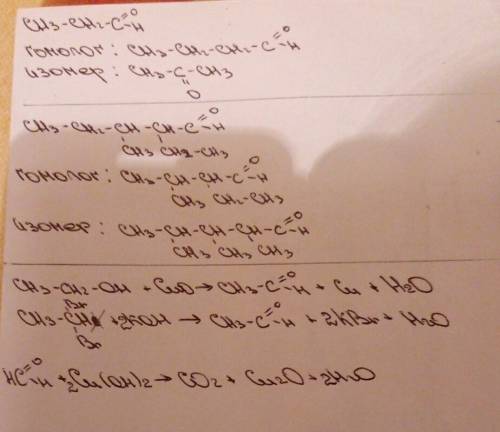 CH3-CH2-C=O-H
гомолог: CH3-CH2-CH2-C=O-H
изомер: CH3-C-CH3
=
O
CH3-CH2-CH-CH-C=O-H
CH3 CH2-CH3
гомолог: CH3-CH-CH-C=O-H
CH3 CH2-CH3
изомер: CH3-CH-CH-CH-C=O-H
CH3 CH3 CH3
CH3-CH2-OH + CuO → CH3-C=O-H + Cu + H2O
Br
CH3-CH + 2KOH → CH3-C=O-H + 2KBr + H2O
Br
HC=O-H + 2Cu(OH)2 → CO2 + Cu2O + 2H2O